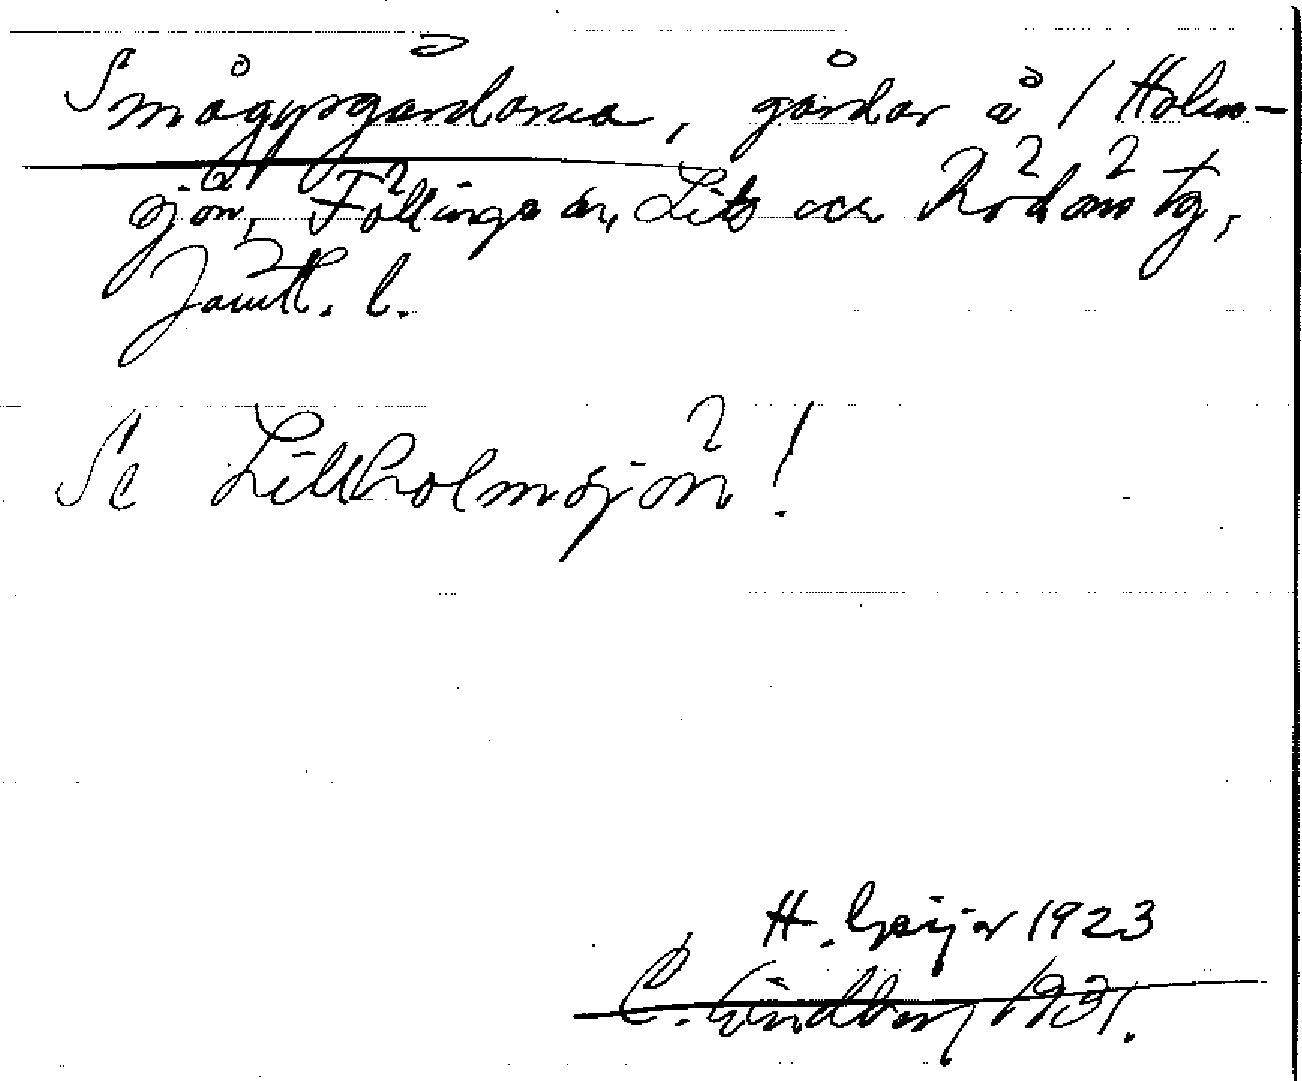 Smågårdarna, gårdar å / Holm-
sjön, Föllinge sn, Lits och Rödöns tg,
Jämtl. l.
Se Lillholmsjön!
H. Geijer 1923
C. Lindberg 1931.